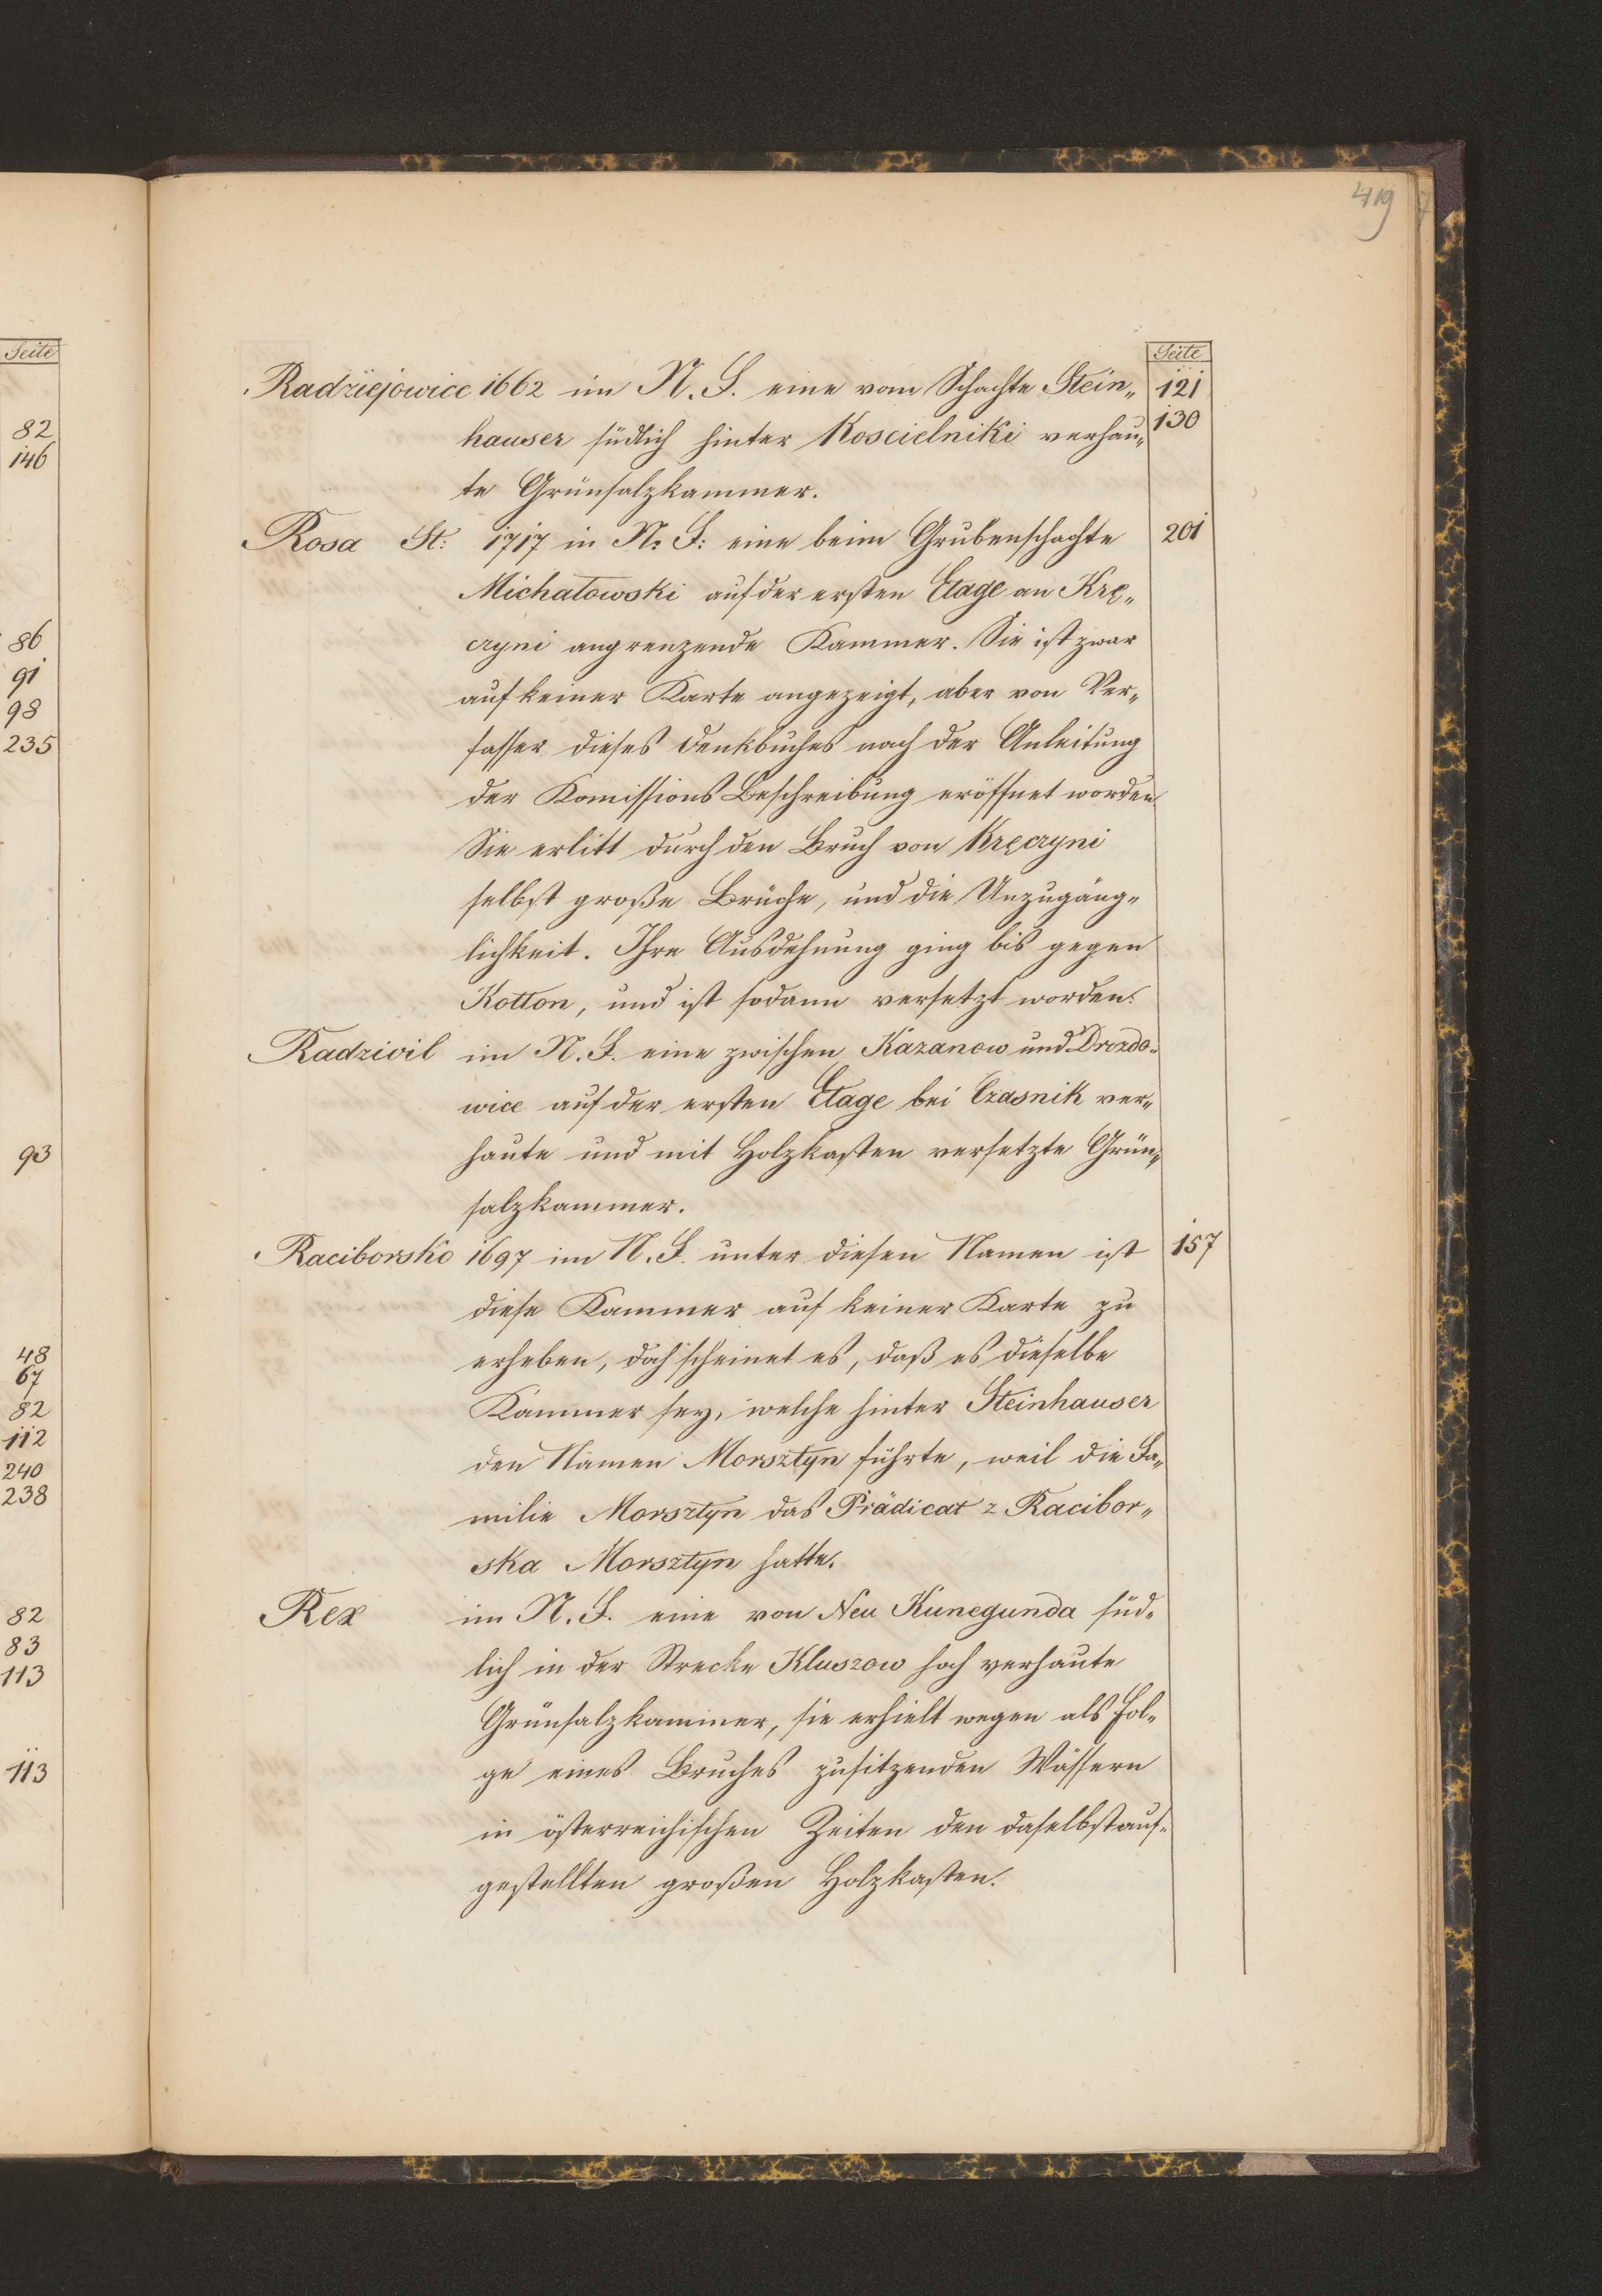 419
Seite
82
146
86
91
98
235
93
48
67
82
112
240
238
82
83
113
113
Seite
Radziejowice 1662 im N. F. eine vom Schachte Stein„ 121
hauser südlich hinter Koscielniki verhau„ 130
te Grünsalzkammer.
Rosa St: 1717 in N: F: eine beim Grubenschachte 201
Michałowski auf der ersten Etage an Krę„
czyni angrenzende Kammer. Sie ist zwar
auf keiner Karte angezeigt, aber von Ver„
fasser dieses Denkbuches nach der Anleitung
der Komissions Beschreibung eröffnet worden
Sie erlitt durch den Bruch von Kręczyni
selbst große Brüche, und die Unzugäng„
lichkeit. Ihre Ausdehnung ging bis gegen
Kotton, und ist sodann versetzt worden.
Radzivil im N. F. eine zwischen Kazanow und Drozdo„
wice auf der ersten Etage bei Czasnik ver„
haute und mit Holzkasten versetzte Grün„
salzkammer.
Raciborsko 1697 im N. F. unter diesen Namen ist 157
diese Kammer auf keiner Karte zu
erheben, doch scheinet es, daß es dieselbe
Kammer sey, welche hinter Steinhauser
den Namen Morsztyn führte, weil die Fa„
milie Morsztyn das Prädicat z Racibor„
ska Morsztyn hatte.
Rex im N. F. eine von Neu Kunegunda süd„
lich in der Strecke Kluszow hoch verhaute
Grünsalzkammer, sie erhielt wegen als Fol„
ge eines Bruches zusitzenden Wässern
in österreichischen Zeiten den daselbst auf„
gestellten großen Holzkasten.